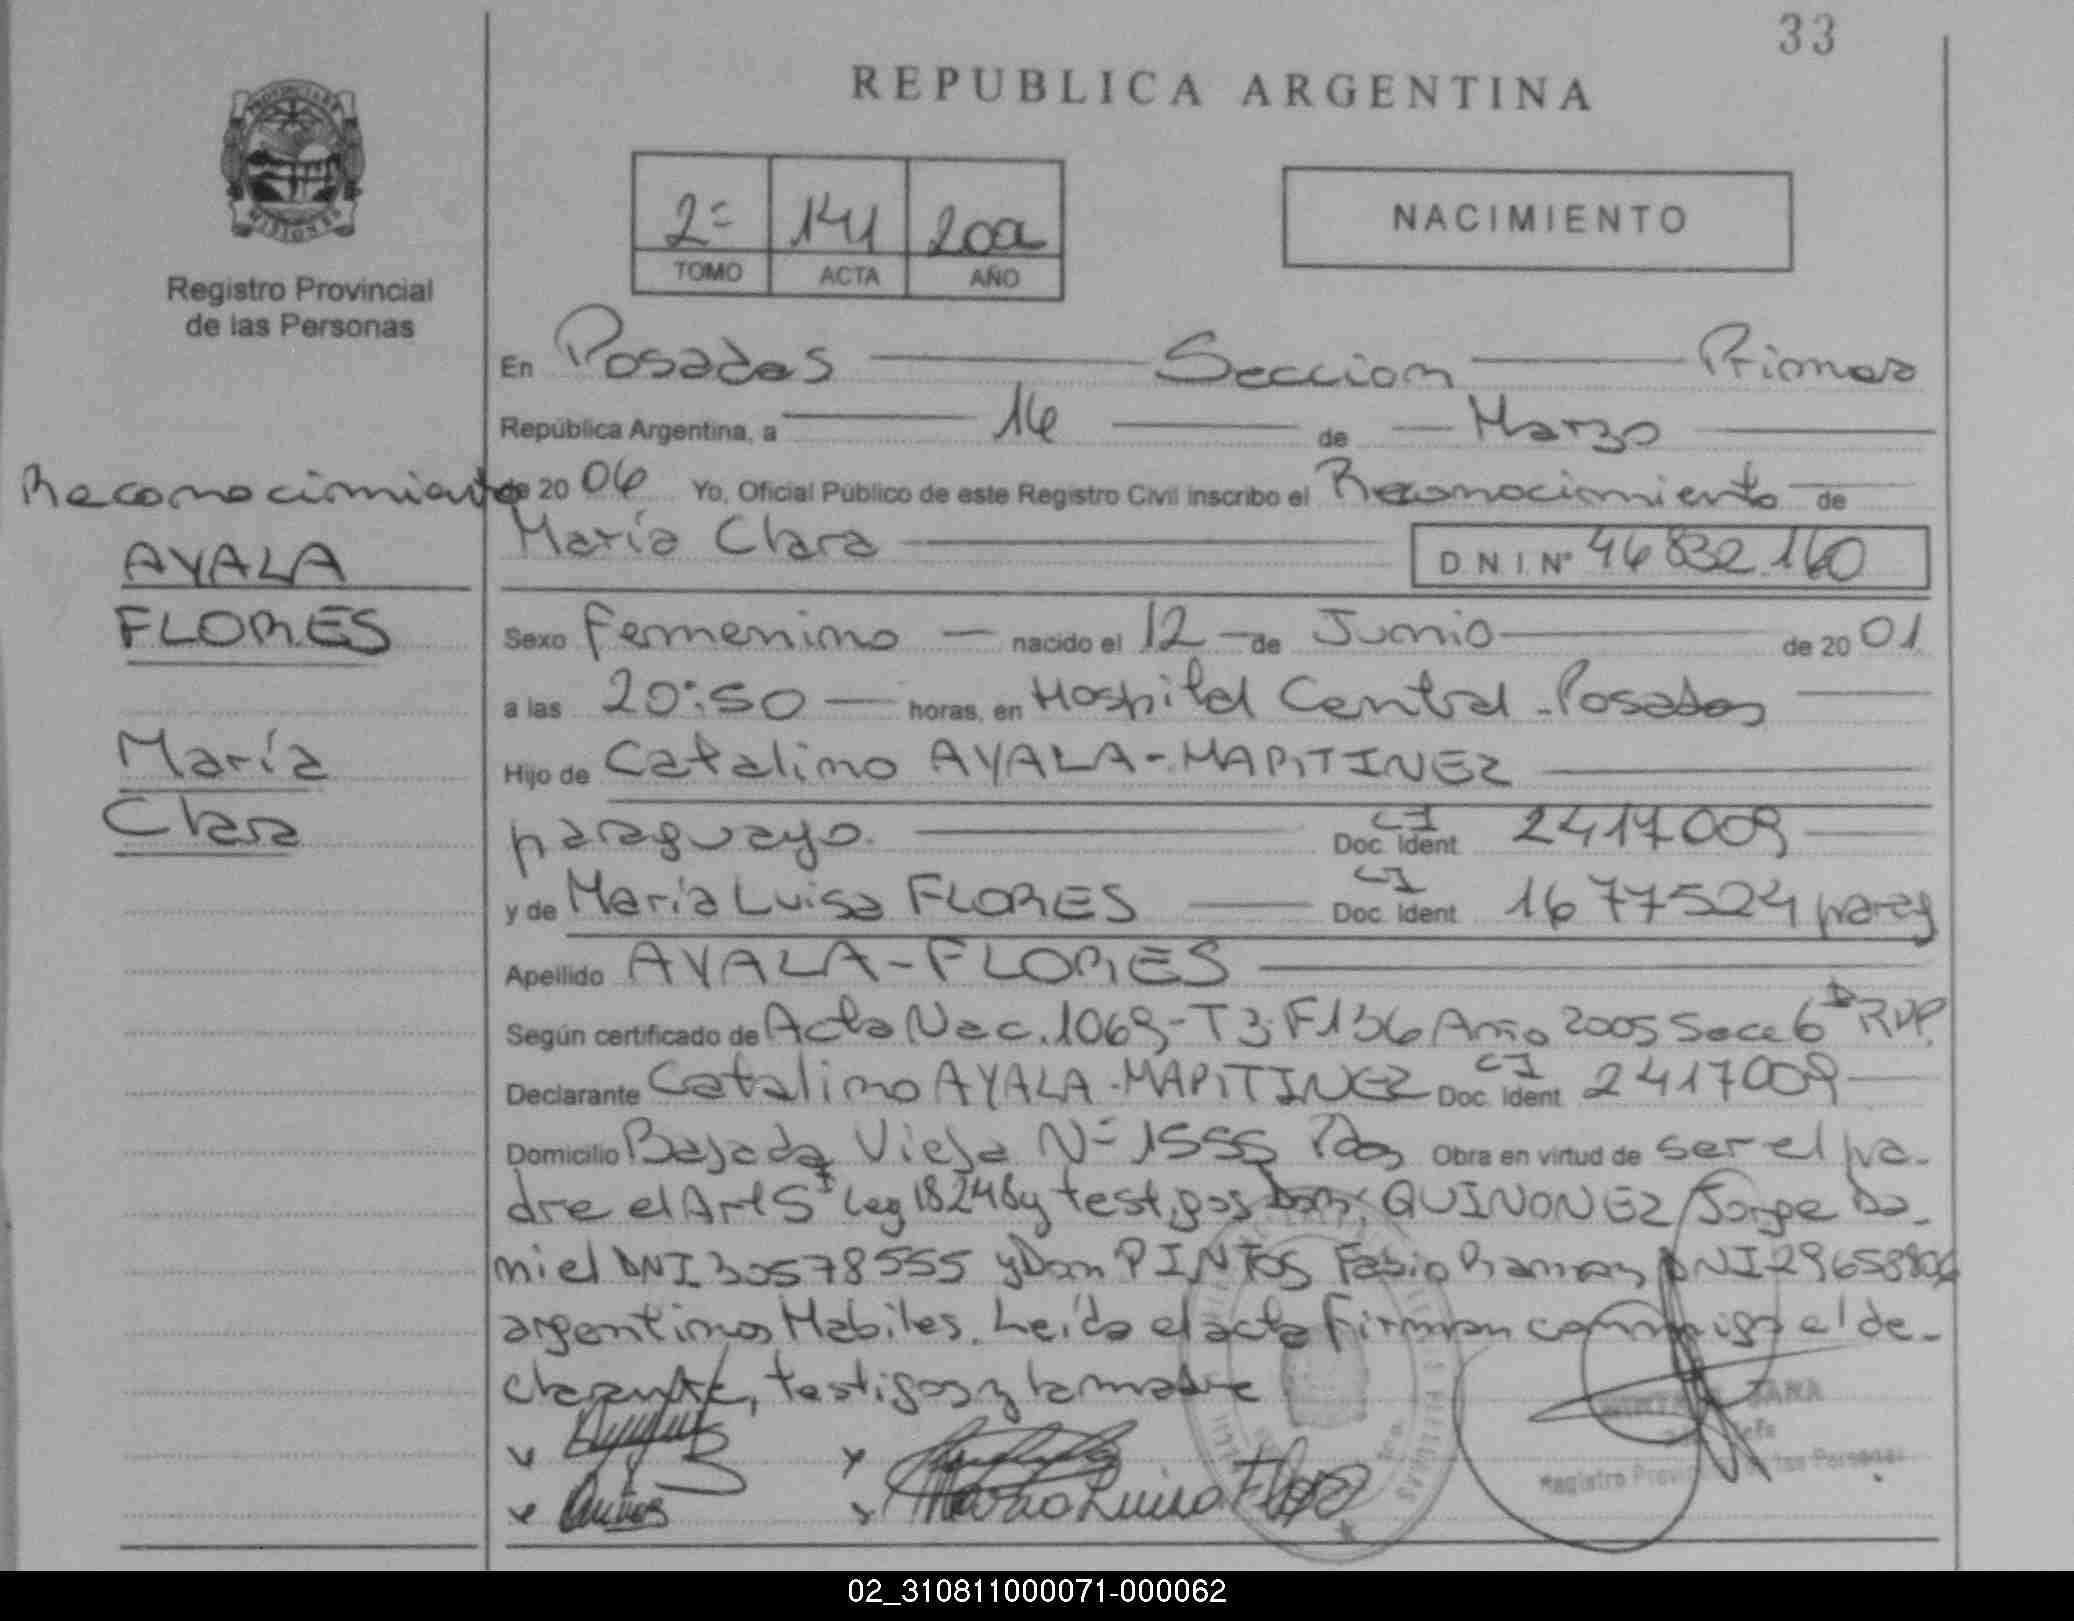 33
REPUBLICA ARGENTINA
2º 141
TOMO ACTA AÑO
NACIMIENTO
Registro Provincial
de las Personas
En Posadas Seccion Primera
República Argentina, a 16 de Marzo
Reconocimiento
de 2006 Yo, Oficial Público de este Registro Civil inscribo el Reconocimiento de
María Clara DNI Nº 46832.160
AYALA
FLORES
María
Clara
Sexo femenino nacido el 12 de Junio de 2001
a las 20:50 horas, en Hospital Central - Posadas
Hijo de Catalino AYALA-MARTINEZ
paraguayo. Doc. Ident CI 2417009
y de María Luisa FLORES Doc. Ident CI 1677524 parag
Apellido AYALA-FLORES
Según certificado de Acta Nac. 1069-T3-F136 Año 2005 Secc 6ª RPP.
Declarante Catalino AYALA-MARTINEZ Doc. Ident CI 2417009
Domicilio Bajada Vieja Nº 1555 Pdas Obra en virtud de ser el pa-
dre el Art 5º Ley 18248 y testigos Don: QUINONEZ Jorge Da-
niel DNI 30578555 y Don PINTOS Fabio Ramon DNI
argentinos Habiles. Leída el acta firman conmigo el de-
clarante, testigos y la madre
Maria Luisa Flores
Registro Provincial de las Personas
02_310811000071-000062